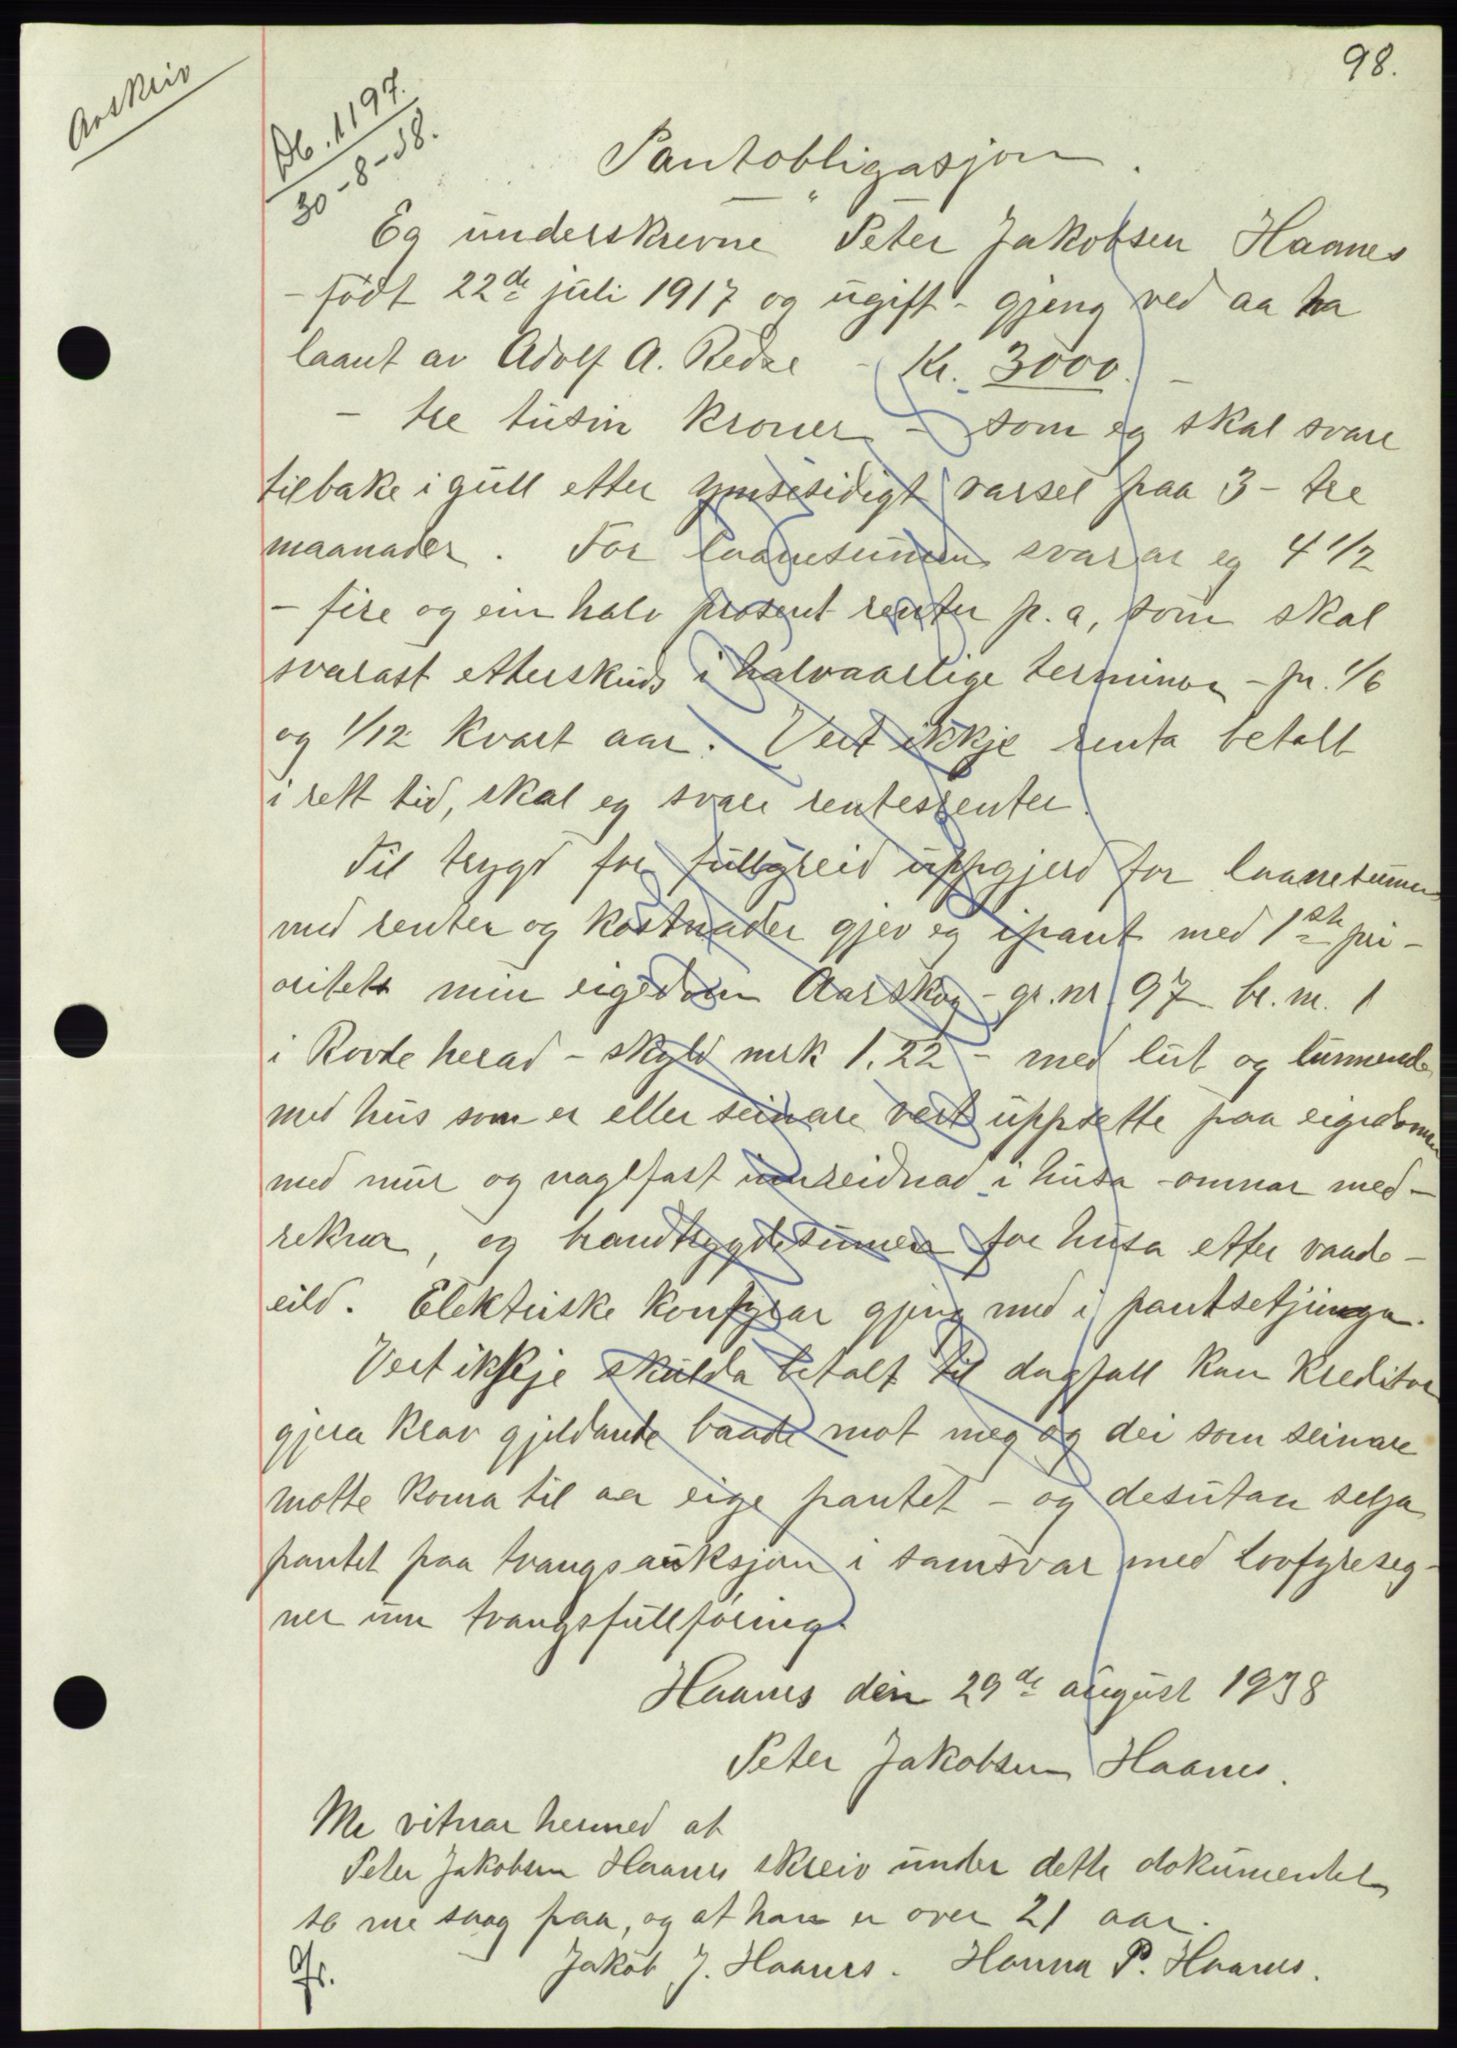 98.
Avskriv
Db. 1197.
30-8-38.
Pantobligasjon.
Eg underskrevne Peter Jakobsen Haanes
- født 22de juli 1917 og ugift - gjeng ved aa ha
laant av Adolf A. Redse - Kr. 3000. -
- tre tusin kroner - som eg skal svare
tilbake i gull etter ymsesidigt varsel paa 3 - tre
maanader. For laanesumen svarar eg 4 1/2
- fire og ein halv prosent renter p. a, som skal
svarast etterskuds i halvaarlige terminar - pr. 1/6
og 1/12 kvart aar. Vert ikkje renta betalt
i rett tid, skal eg svare rentesrenter.
Til trygd for fullgreid uppgjerd for laanesumen
med renter og kostnader gjev eg i pant med 1ste pri-
oritet min eigedom Aarskog - gr. nr. 97 br. nr. 1
i Rovde herad - skyld mrk 1.22 - med lut og lunnende
med hus som er eller seinare vert uppsette paa eigedomen
med mur og naglfast innreidnad i husa - omnar med-
rekna, og brandtrygdesumen for husa etter vaade-
eild. Elektriske komfyrar gjeng med i pantsetjinga.
Vert ikkje skulda betalt til dagfall kan kreditor
gjera krav gjeldande baade mot meg og dei som seinare
motte koma til aa eige pantet - og desutan selja
pantet paa tvangsauksjon i samsvar med lovfyreseg-
ner um tvangsfullføring.
Haanes den 29de august 1938
Peter Jakobsen Haanes.
Me vitnar hermed at
Peter Jakobsen Haanes skreiv under dette dokumentet
so me saag paa, og at han er over 21 aar.
Jakob J. Haanes. Hanna P. Haanes.